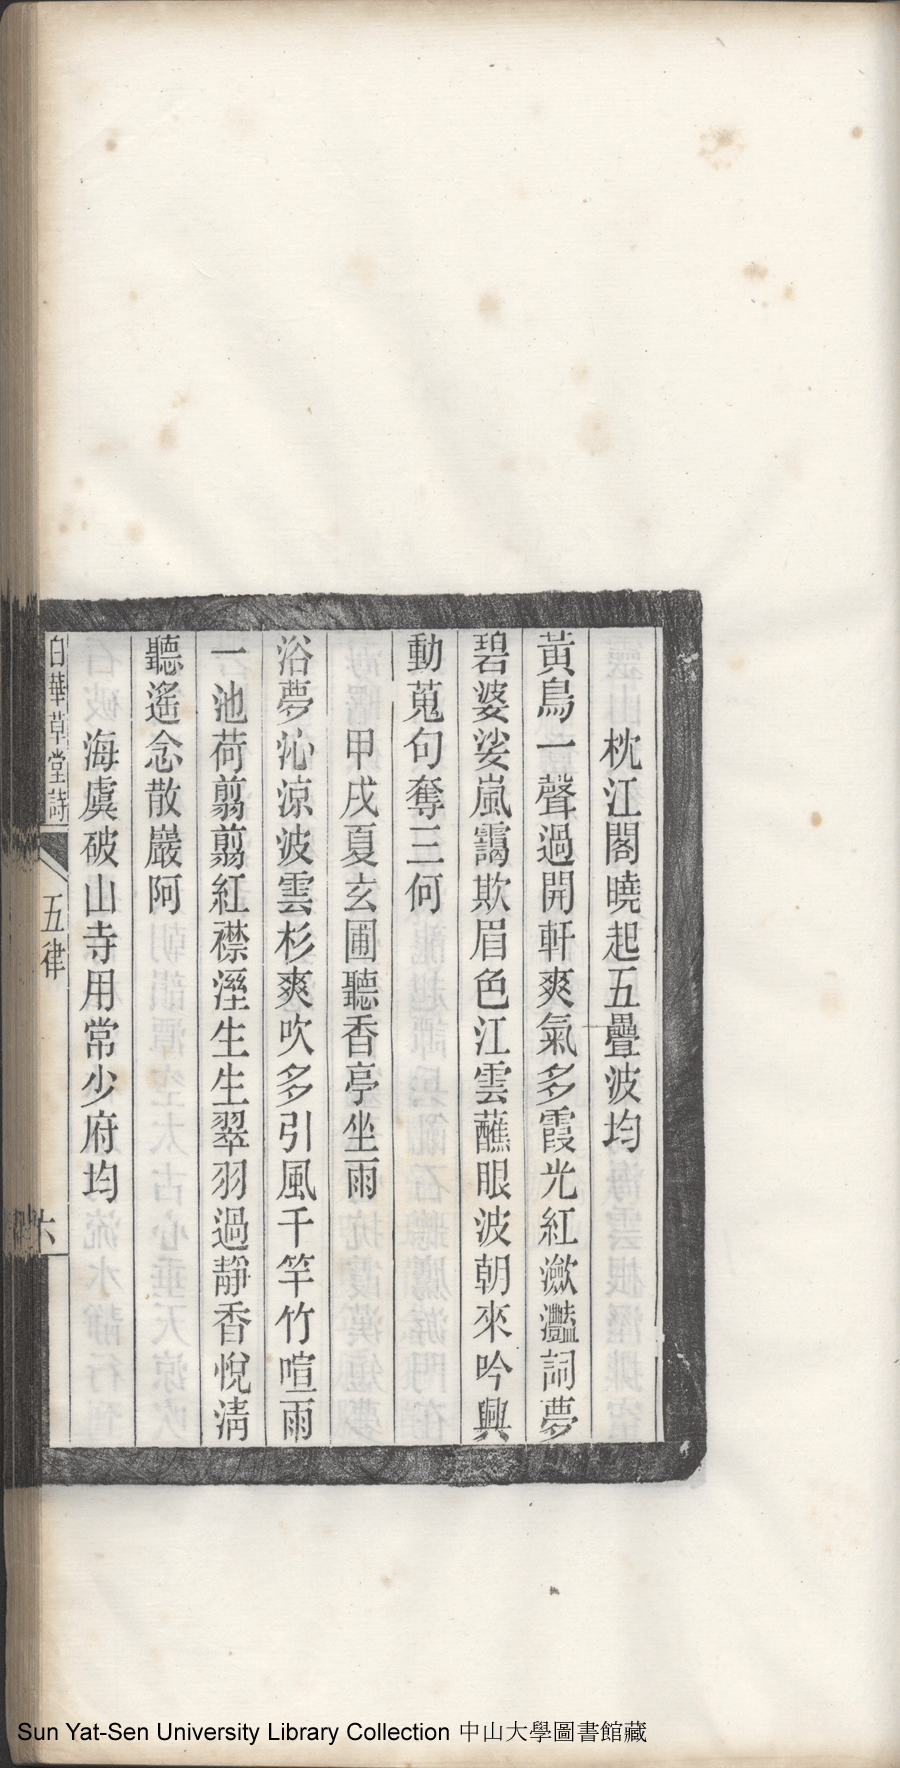 枕江閣曉起五疊波均
黃鳥一聲過開軒爽氣多霞光紅瀲灩詞夢
碧婆娑嵐靄欺眉色江雲蘸眼波朝來吟興
動蒐句奪三何
甲戌夏玄圃聽香亭坐雨
浴夢沁涼波雲杉爽吹多引風千竿竹喧雨
一池荷翦翦紅襟溼生生翠羽過靜香悅清
聽遙念散巖阿
海虞破山寺用常少府均
白華草堂詩
五律
六
Sun Yat-Sen University Library Collection 中山大學圖書館藏